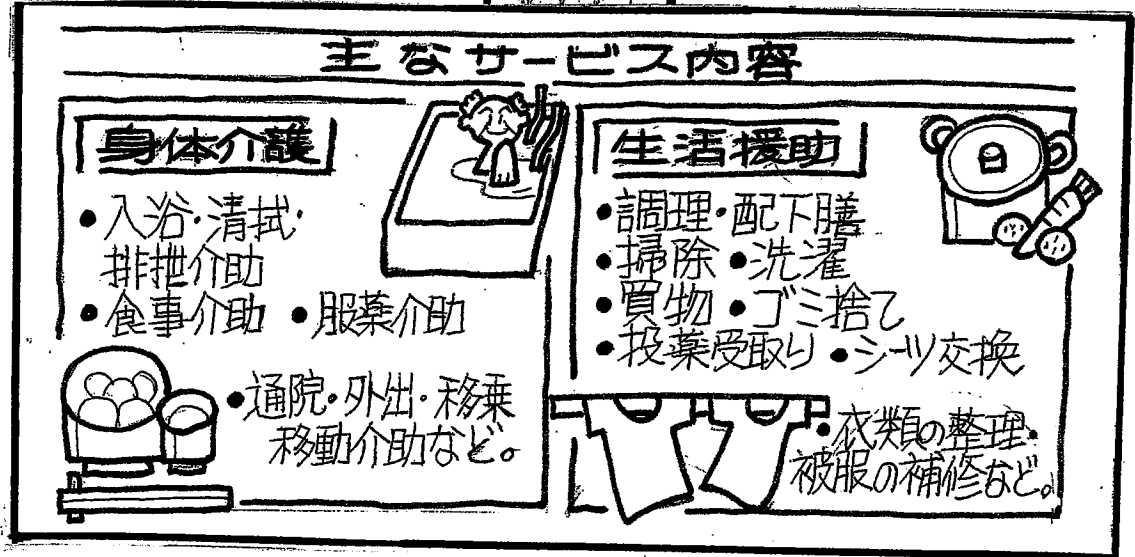 主なサービス内容
身体介護
●入浴・清拭・
排泄介助
●食事介助 ●服薬介助
●通院・外出・移乗
移動介助など。
生活援助
●調理・配下膳
●掃除 ●洗濯
●買物 ●ゴミ捨て
●投薬受取り ●シーツ交換
・衣類の整理・
被服の補修など。